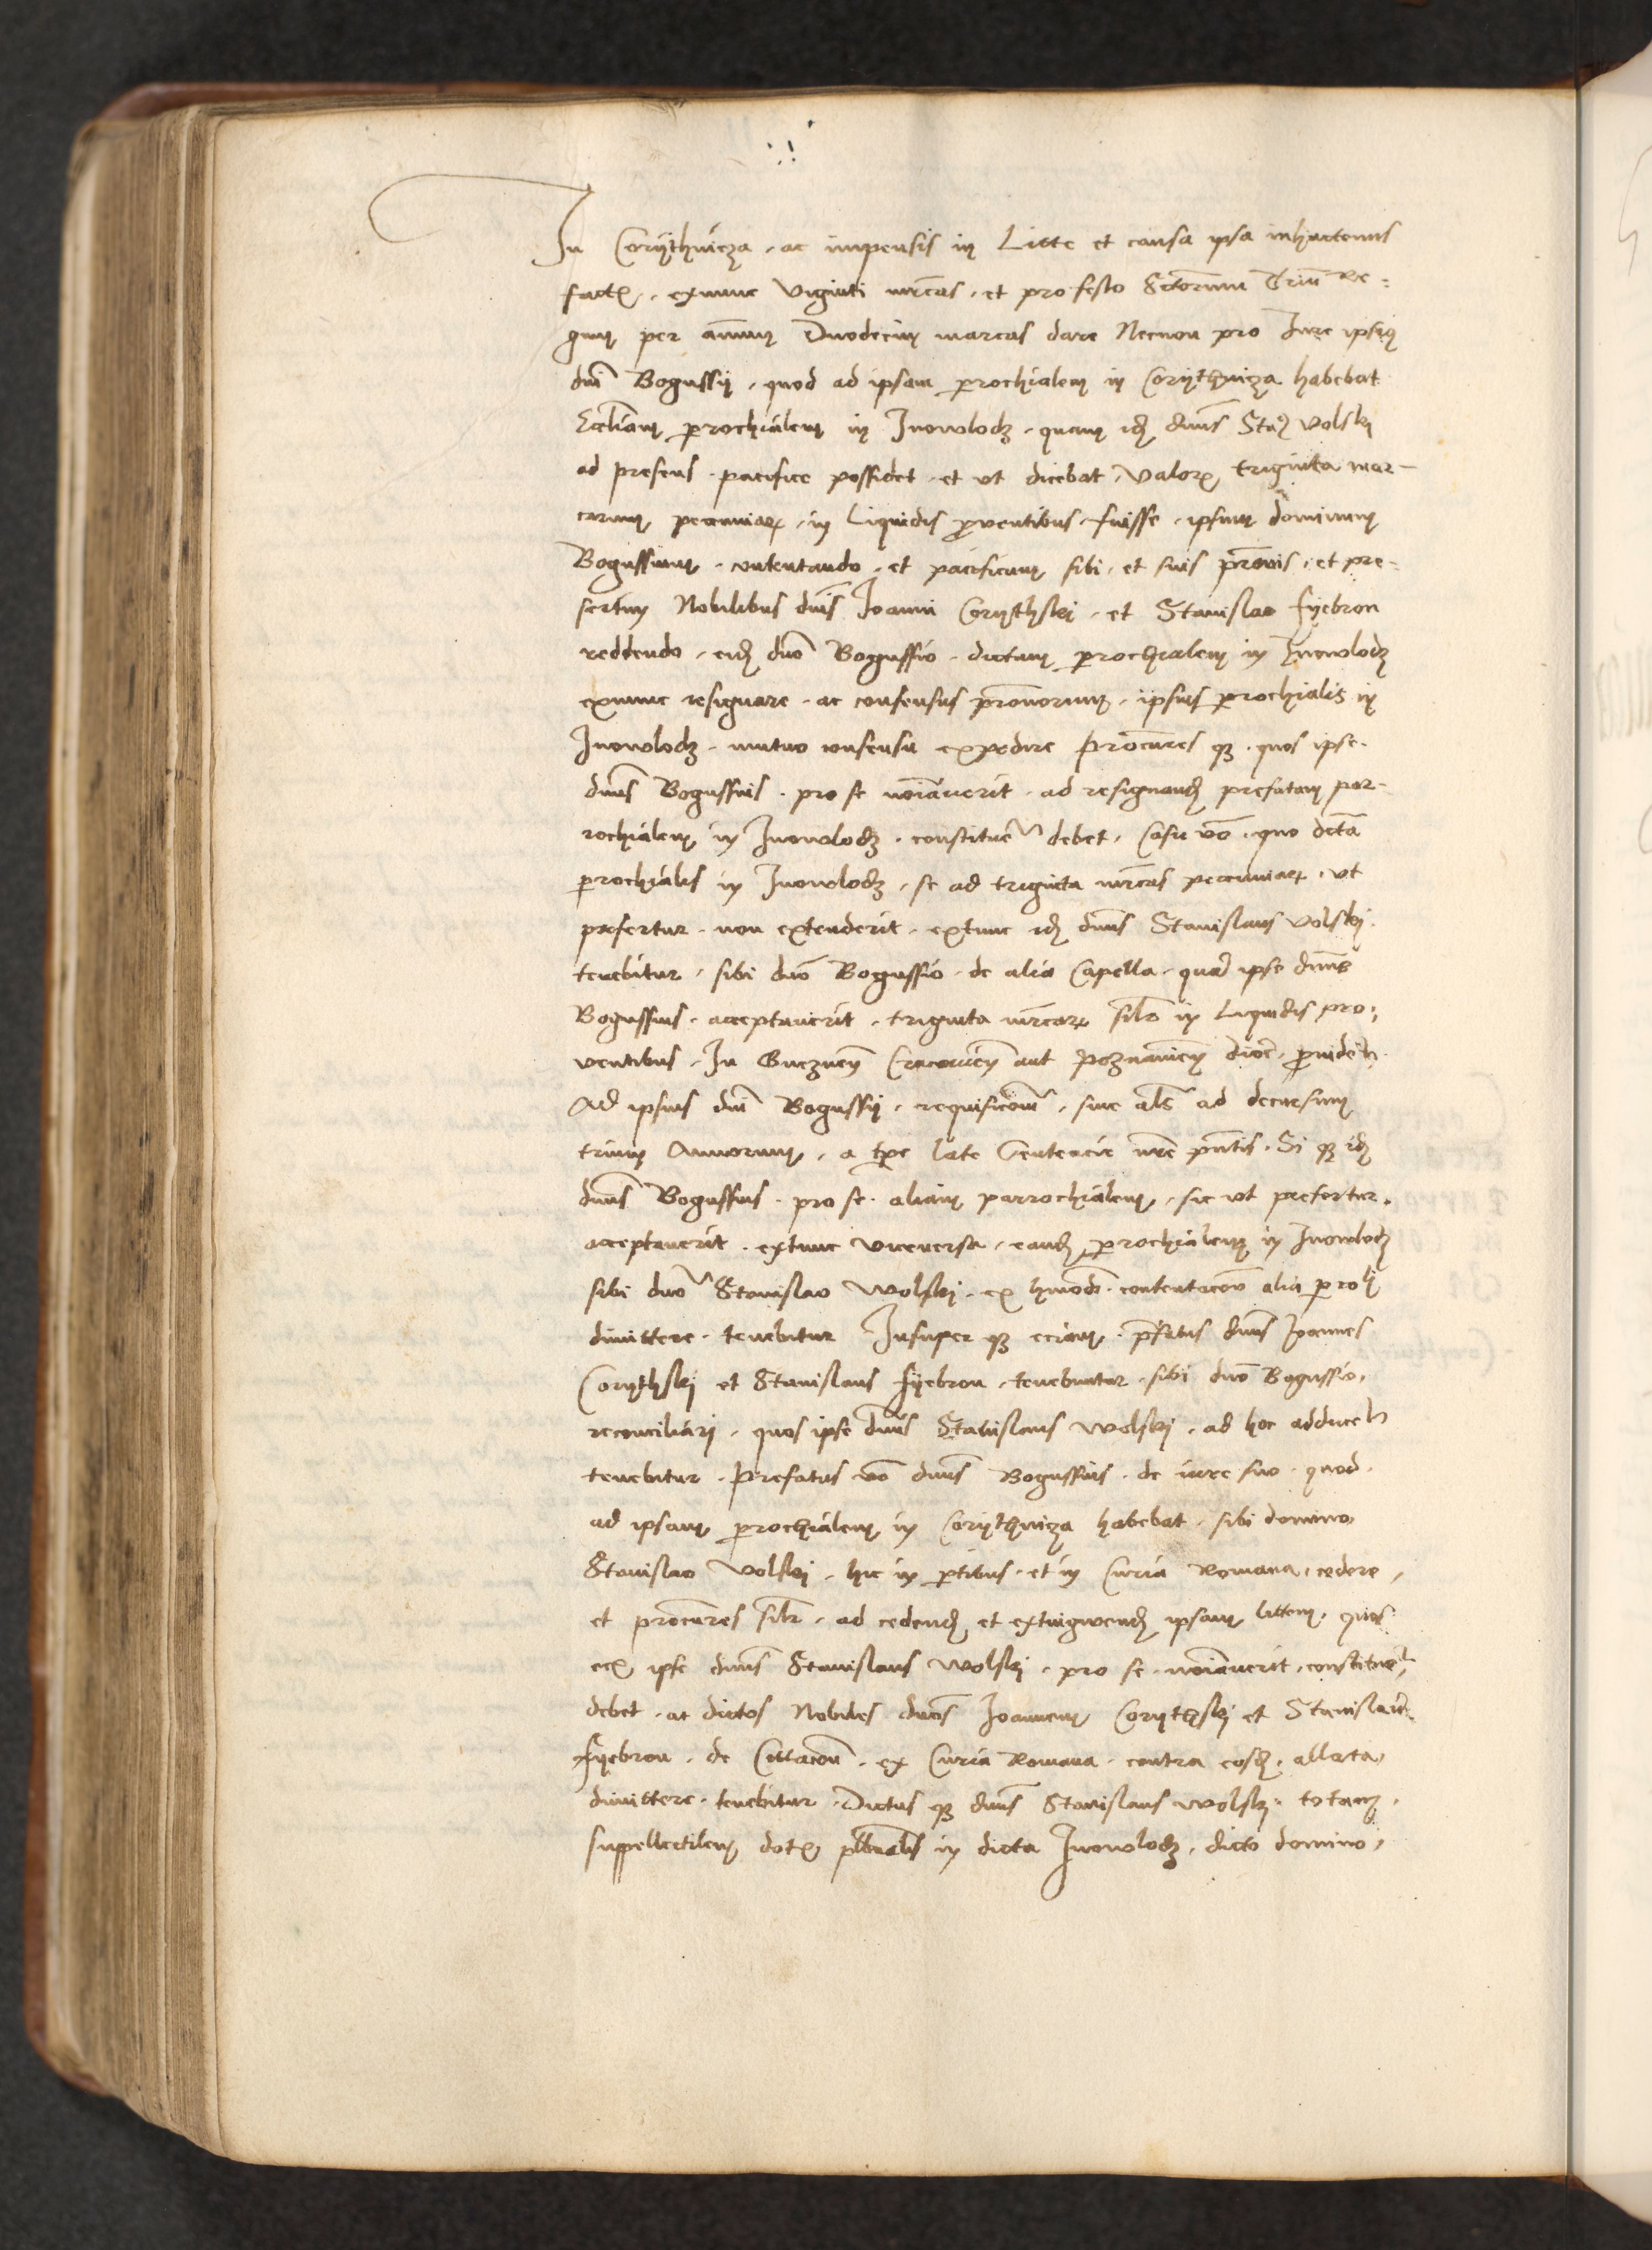 In Corÿthnicza . ac impensis in Litte et causa ipsa inhactenus
fact(is) . exnunc viginti mrcas . et pro festo Sctorum Triu Re=
gum per annum Duodecim marcas dare Necnon pro Jure ipsius
dni Bogussÿ . quod ad ipsam prochialem in Corÿthnicza habebat
Eccliam prochialem in Jnowlodz . quam idz dnus Sta(us) Volskÿ
ad presens . pacifice possidet . et vt dicebat . valor(is) triginta mar-
carum pecuniar(um) . in Liquidis proventibus . fuisse . ipsum dominum
Bogussium . contentando . et pacificum sibi . et suis pronis . et pre=
sertim Nobilibus dnis Joanni Corÿthskj . et Stanislao fÿebron
reddendo . eidz dno Bogussio . dictam prochialem in Jnowlodz
exnunc resignare . ac consensus pronorum . ipsius prochialis in
Jnowlodz . mutuo consensu expedire procures qz . quos ipse .
dnus Bogussius . pro se noiauerit . ad resignandz prefatam par-
rochialem in Jnowlodz . constituere debet . Casu vo . quo dcta
prochialis in Jnowlodz . se ad triginta mrcas pecuniar(um) . vt
prefertur . non extenderit . extunc idz dnus Stanislaus Volskj .
tenebitur . sibi dno Bogussio . de alia Capella . qua ipse dnus
Bogussius . acceptauerit . triginta mrcar(um) silr in Liquidis pro=
ventibus . In Gneznen Cracouien aut Poznanien dioc . prouidere .
Ad ipsius dni Bogussÿ . requisicoem . siue als ad decursum
trium Annorum . a tpe late Sentencie nre pntis . Si qz idz
dnus Bogussius . pro se . aliam parrochialem . sic vt prefertur .
acceptauerit . extunc viceuersa . eandz prochialem in Jnowlodz
sibi dno Stanislao Wolskj . ex hmodi . contentacoe alia proli
dimittere . tenebitur Insuper qz eciam . prfatus dnus Joannes
Corÿthskj et Stanislaus fÿebron . tenebuntur . sibi dno Bogussio .
reconciliarj . quos ipse dnus Stanislaus Wolskj . ad hoc adducere
tenebitur . Prefatus vo dnus Bogussius . de iure suo . quod .
ad ipsam prochialem in Corÿthnicza habebat . sibi domino
Stanislao Volskj . hic in prtibus . et in Curia Romana . cedere .
et procures silr . ad cedendz et extingwendz ipsam littem . quos
ipse dnus Stanislaus Wolskj . pro se . noiauerit . constituere
debet . ac dictos Nobiles dnos Joannem Corÿthskj et Stanislaum
fÿebron . de Cittacoe . ex Curia Romana . contra eosdz . allata .
dimittere . tenebitur . Dictus qz dnus Stanislaus Wolskj . totam .
suppellectilem dot(is) plbnalis in dicta Jnowlodz . dicto domino .